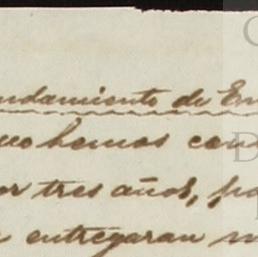 ndamiento de En
hemos con
or tres años, pa
entregaran